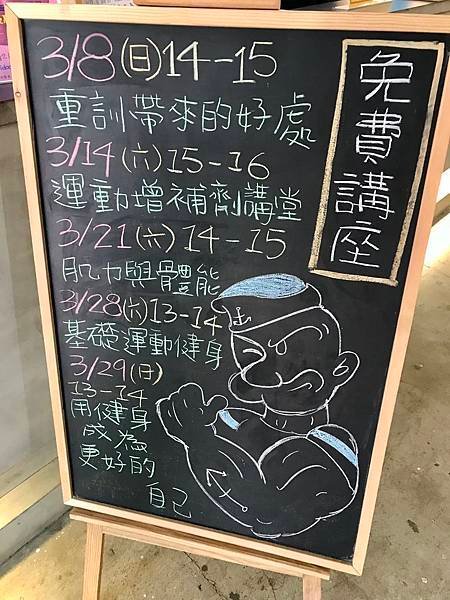 免費講座
3/8(日)14-15
重訓帶來的好處
3/14(六)15-16
運動增補劑講堂
3/21(六)14-15
肌力與體能
3/28(六)13-14
基礎運動健身
3/29(日)
13-14
用健身
成為
更好的
自己